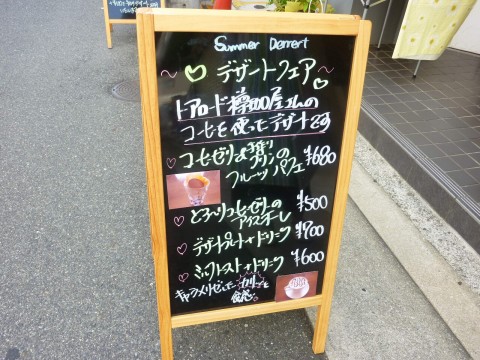 Summer Dessert
デザートフェア
トアロード樽珈屋さんの
コーヒーを使ったデザートです
コーヒーゼリーと手作り
プリンの
フルーツパフェ ¥680
とろ〜りコーヒーゼリーの
アイスオーレ ¥500
デザートプレート+ドリンク ¥900
ミルクトースト+ドリンク ¥600
キャラメリゼした
食感